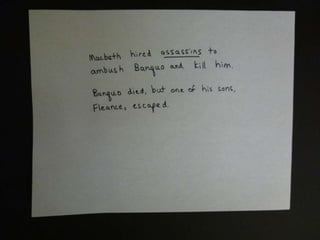 Macbeth hired assassins to
ambush Banquo and kill him.
Banquo died, but one of his sons,
Fleance, escaped.